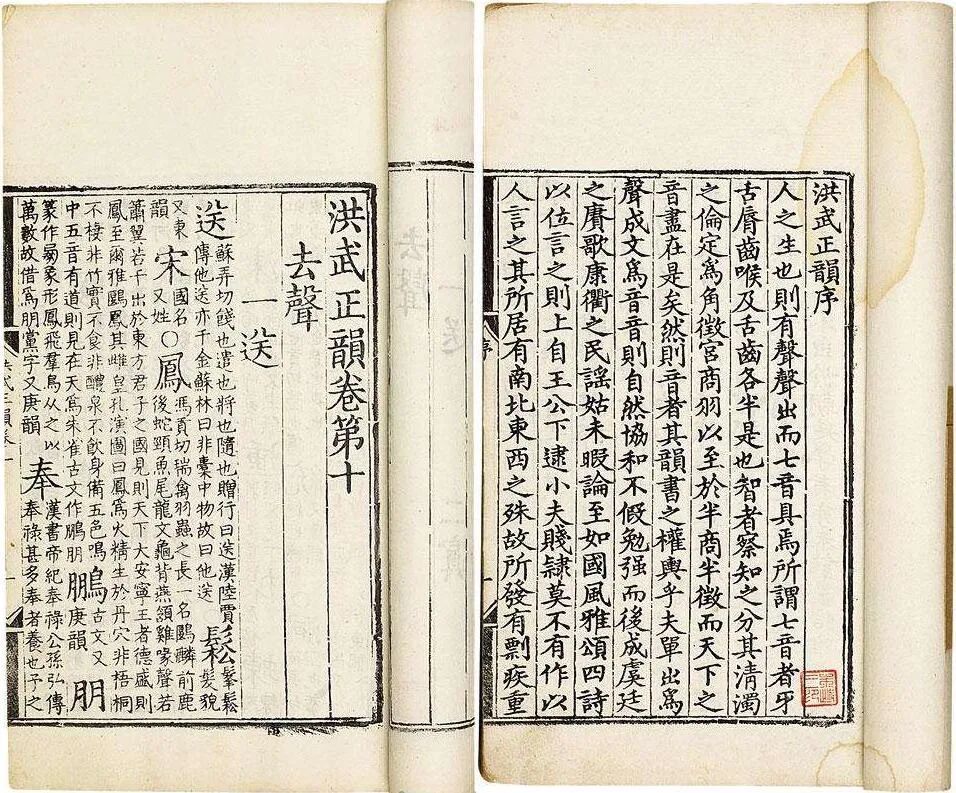 洪武正韻序
人之生也則有聲聲出而七音具焉所謂七音者牙
舌脣齒喉及舌齒各半是也智者察知之分其清濁
之倫定爲角徵宮商羽以至於半商半徵而天下之
音盡在是矣然則音者其韻書之權輿乎夫單出爲
聲成文爲音音則自然協和不假勉强而後成虞廷
之賡歌康衢之民謠姑未暇論至如國風雅頌四詩
以位言之則上自王公下逮小夫賤隷莫不有作以
人言之其所居有南北東西之殊故所發有剽疾重
洪武正韻卷第十
去聲
一送
送蘇弄切餞也遣也將也隨也贈行曰送漢陸賈傳他送亦千金蘇林曰非橐中物故曰他送鬆鬆髮貌
又東韻宋國名又姓○鳳馮貢切瑞禽羽蟲之長一名鶠麟前鹿後蛇頸魚尾龍文龜背燕頷雞喙聲若
簫翼若干出於東方君子之國見則天下大安寧王者德盛則鳳至爾雅鶠鳳其雌皇孔演圖曰鳳爲火精生於丹穴非梧桐
不棲非竹實不食非醴泉不飲身備五色鳴中五音有道則見在天爲朱雀古文作鵬朋鵬古文又庚韻朋
篆作象形鳳飛羣鳥从之以萬數故借爲朋黨字又庚韻奉漢書帝紀奉祿公孫弘傳奉祿甚多奉者養也子之
序